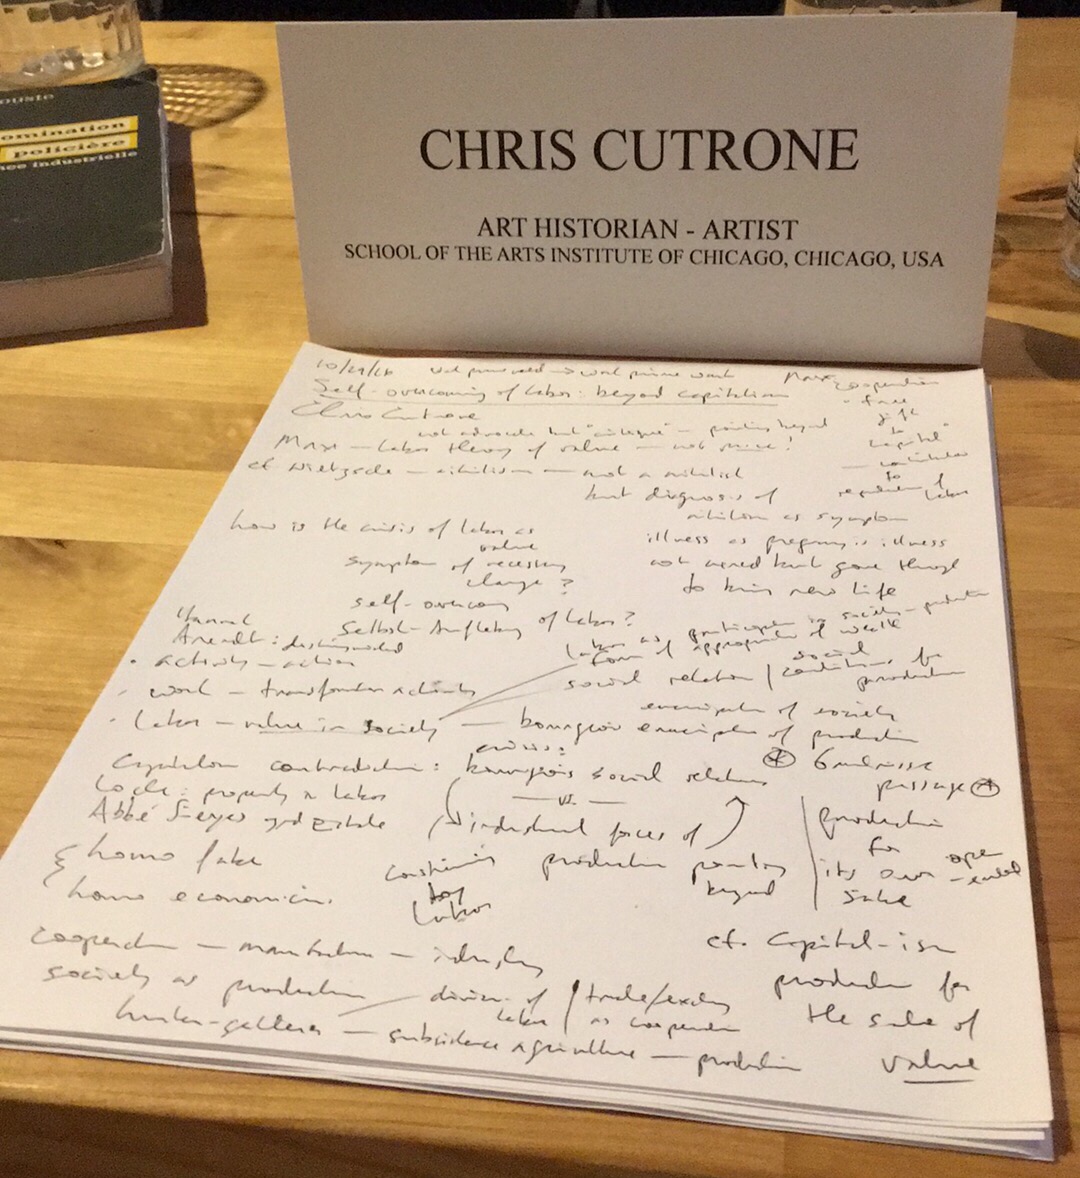 ouste
omination
policière
nce industrielle
CHRIS CUTRONE
ART HISTORIAN - ARTIST
SCHOOL OF THE ARTS INSTITUTE OF CHICAGO, CHICAGO, USA
Self-overcoming of labor: beyond capitalism
Chris Cutrone
not advocate but "critique" - pointing beyond
Marx - labor theory of value - not mine!
cf Nietzsche - nihilism - not a nihilist
but diagnosis of
nihilism as symptom
illness as pregnancy is illness
not cured but gone through
to bring new life
Marx: cooperation
- free
gift
to
capital"
to
reproduction of
labor
how is the crisis of labor as
value
symptom of necessary
change?
self-overcoming
Selbst-Aufhebung of labor?
Hannah
Arendt: distinguished
· activity - action
· work - transformation activity
· labor - value in society - bourgeois emancipation of production
labor as participation in society -
form of appropriation of wealth
social relation / social conditions for
production
emancipation of society
Capitalism contradiction: bourgeois social relations
crisis:
- vs. -
industrial forces of
production pointing
beyond
constraining
by
labor
Grundrisse
passage
Locke: property in labor
Abbé Sieyes 3rd Estate
homo faber
homo economicus
production
for
its own
sake
open
-ended
cooperation - manufacture - industry
society as production
division of
labor
trade/exchange
as cooperation
hunter-gatherer - subsistence agriculture - production
cf. Capital-ism
production for
the sake of
value